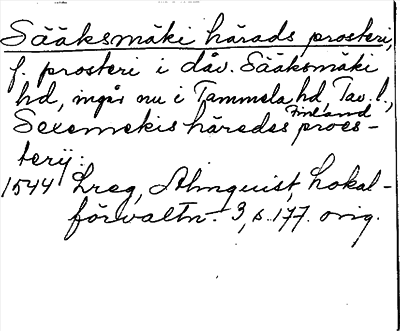 Sääksmäki härads prosteri,
f. prosteri i dåv. Sääksmäki
hd, ingår nu i Tammela hd, Tav. l.,
Finland
Sexemekis häredes proes-
terij:
1544 Lreg, Almquist, Lokal-
förvaltn. 3, s. 177. orig.